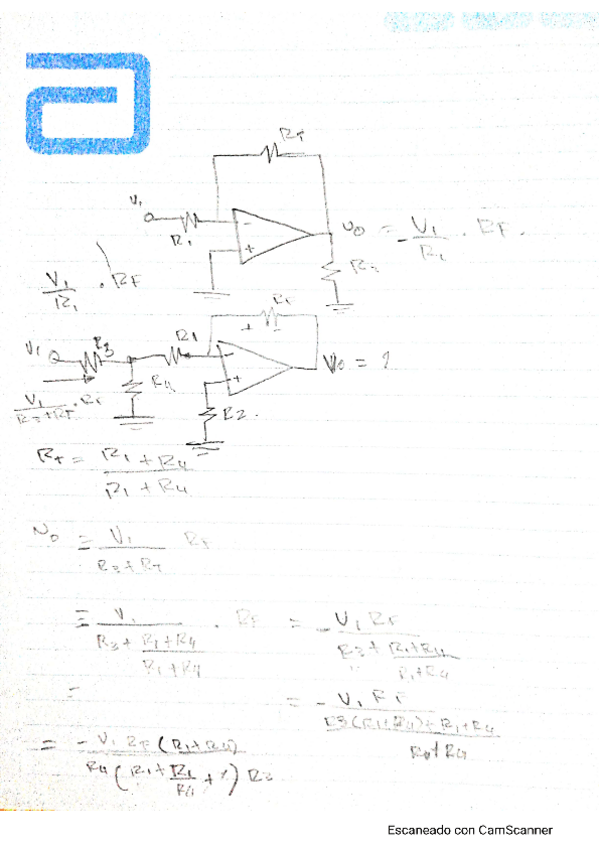 RF
V1
R1
-
+
vo = - V1/R1 . RF.
R2
V1/R1 . RF
RF
+ -
V1
R3
R1
R4
-
+
Vo = ?
R2.
V1/(R3+RT) . RF
RT = (R1 + R4)/(R1 + R4)
Vo = V1/(R3 + RT) RF
= V1/(R3 + (R1+R4)/(R1+R4)) . RF = - V1 RF/(R3 + (R1+R4)/(R1+R4))
=
= - V1 RF/((R3(R1+R4)+R1+R4)/(R1+R4))
= - V1 RF (R1+R4)/
Escaneado con CamScanner